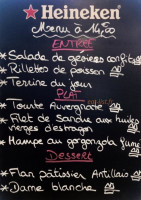 ★ Heineken
Menu à 14,50
ENTRÉE
* Salade de gésiers confits
* Rillettes de poisson
* Terrine du jour
PLAT
* Tourte Auvergnate
* Filet de Sandre aux huiles
vierges d'estragon
* Hampe au gorgonzola fumé
Dessert
* Flan pâtissier Antillais
* Dame blanche